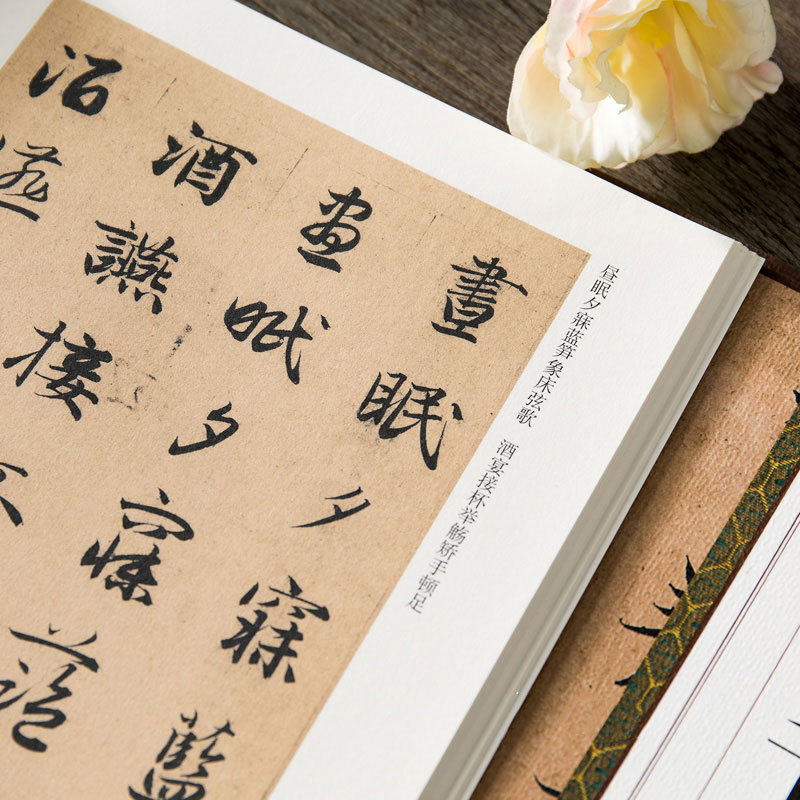 昼眠夕寐蓝笋象床弦歌 酒宴接杯举觞矫手顿足
晝眠夕寐藍
晝眠夕寐藍
酒讌接
酒讌